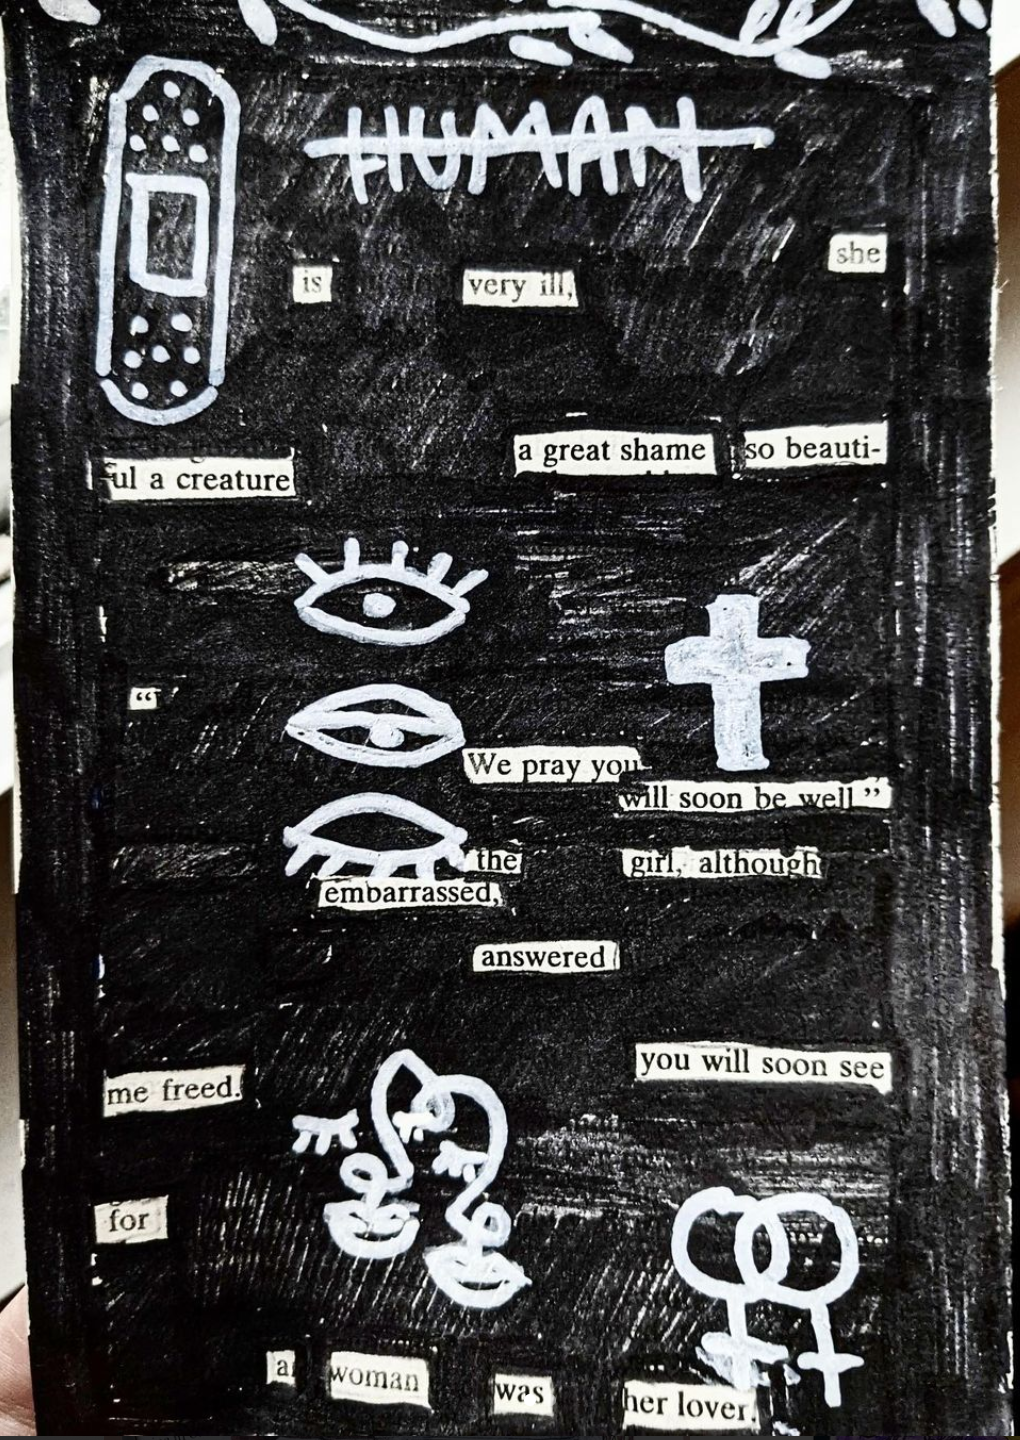 HUMAN
she
is very ill,
a great shame so beauti-
ful a creature
“
We pray you
will soon be well ”
the girl, although
embarrassed,
answered
you will soon see
me freed.
for
a woman was her lover.